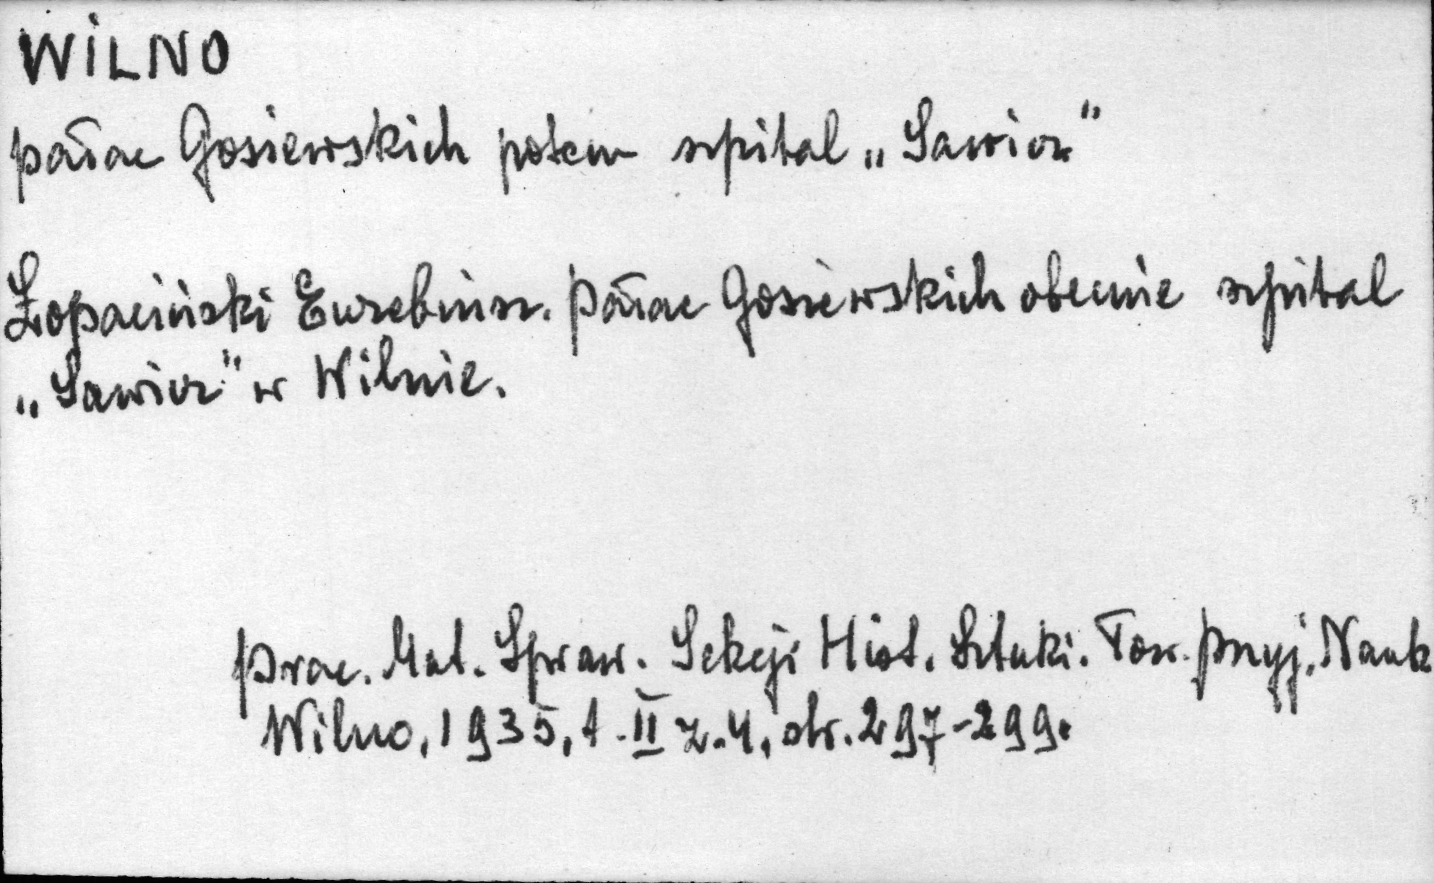 WILNO
pałac Gosiewskich potem szpital „Sawicz”
Łopaciński Euzebiusz. Pałac Gosiewskich obecnie szpital
„Sawicz” w Wilnie.
Prac. Mat. Spraw. Sekcji Hist. Sztuki. Tow. Przyj. Nauk
Wilno, 1935, t. II z. 4, str. 297-299.